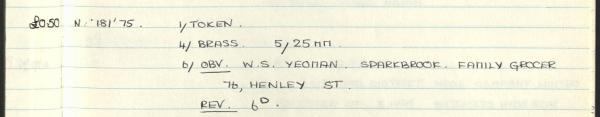 £0.50 N.'181'75. 1/ TOKEN.
4/ BRASS. 5/ 25 mm.
6/ OBV. W.S. YEOMAN. SPARKBROOK. FAMILY GROCER
76, HENLEY ST.
REV. 6D.